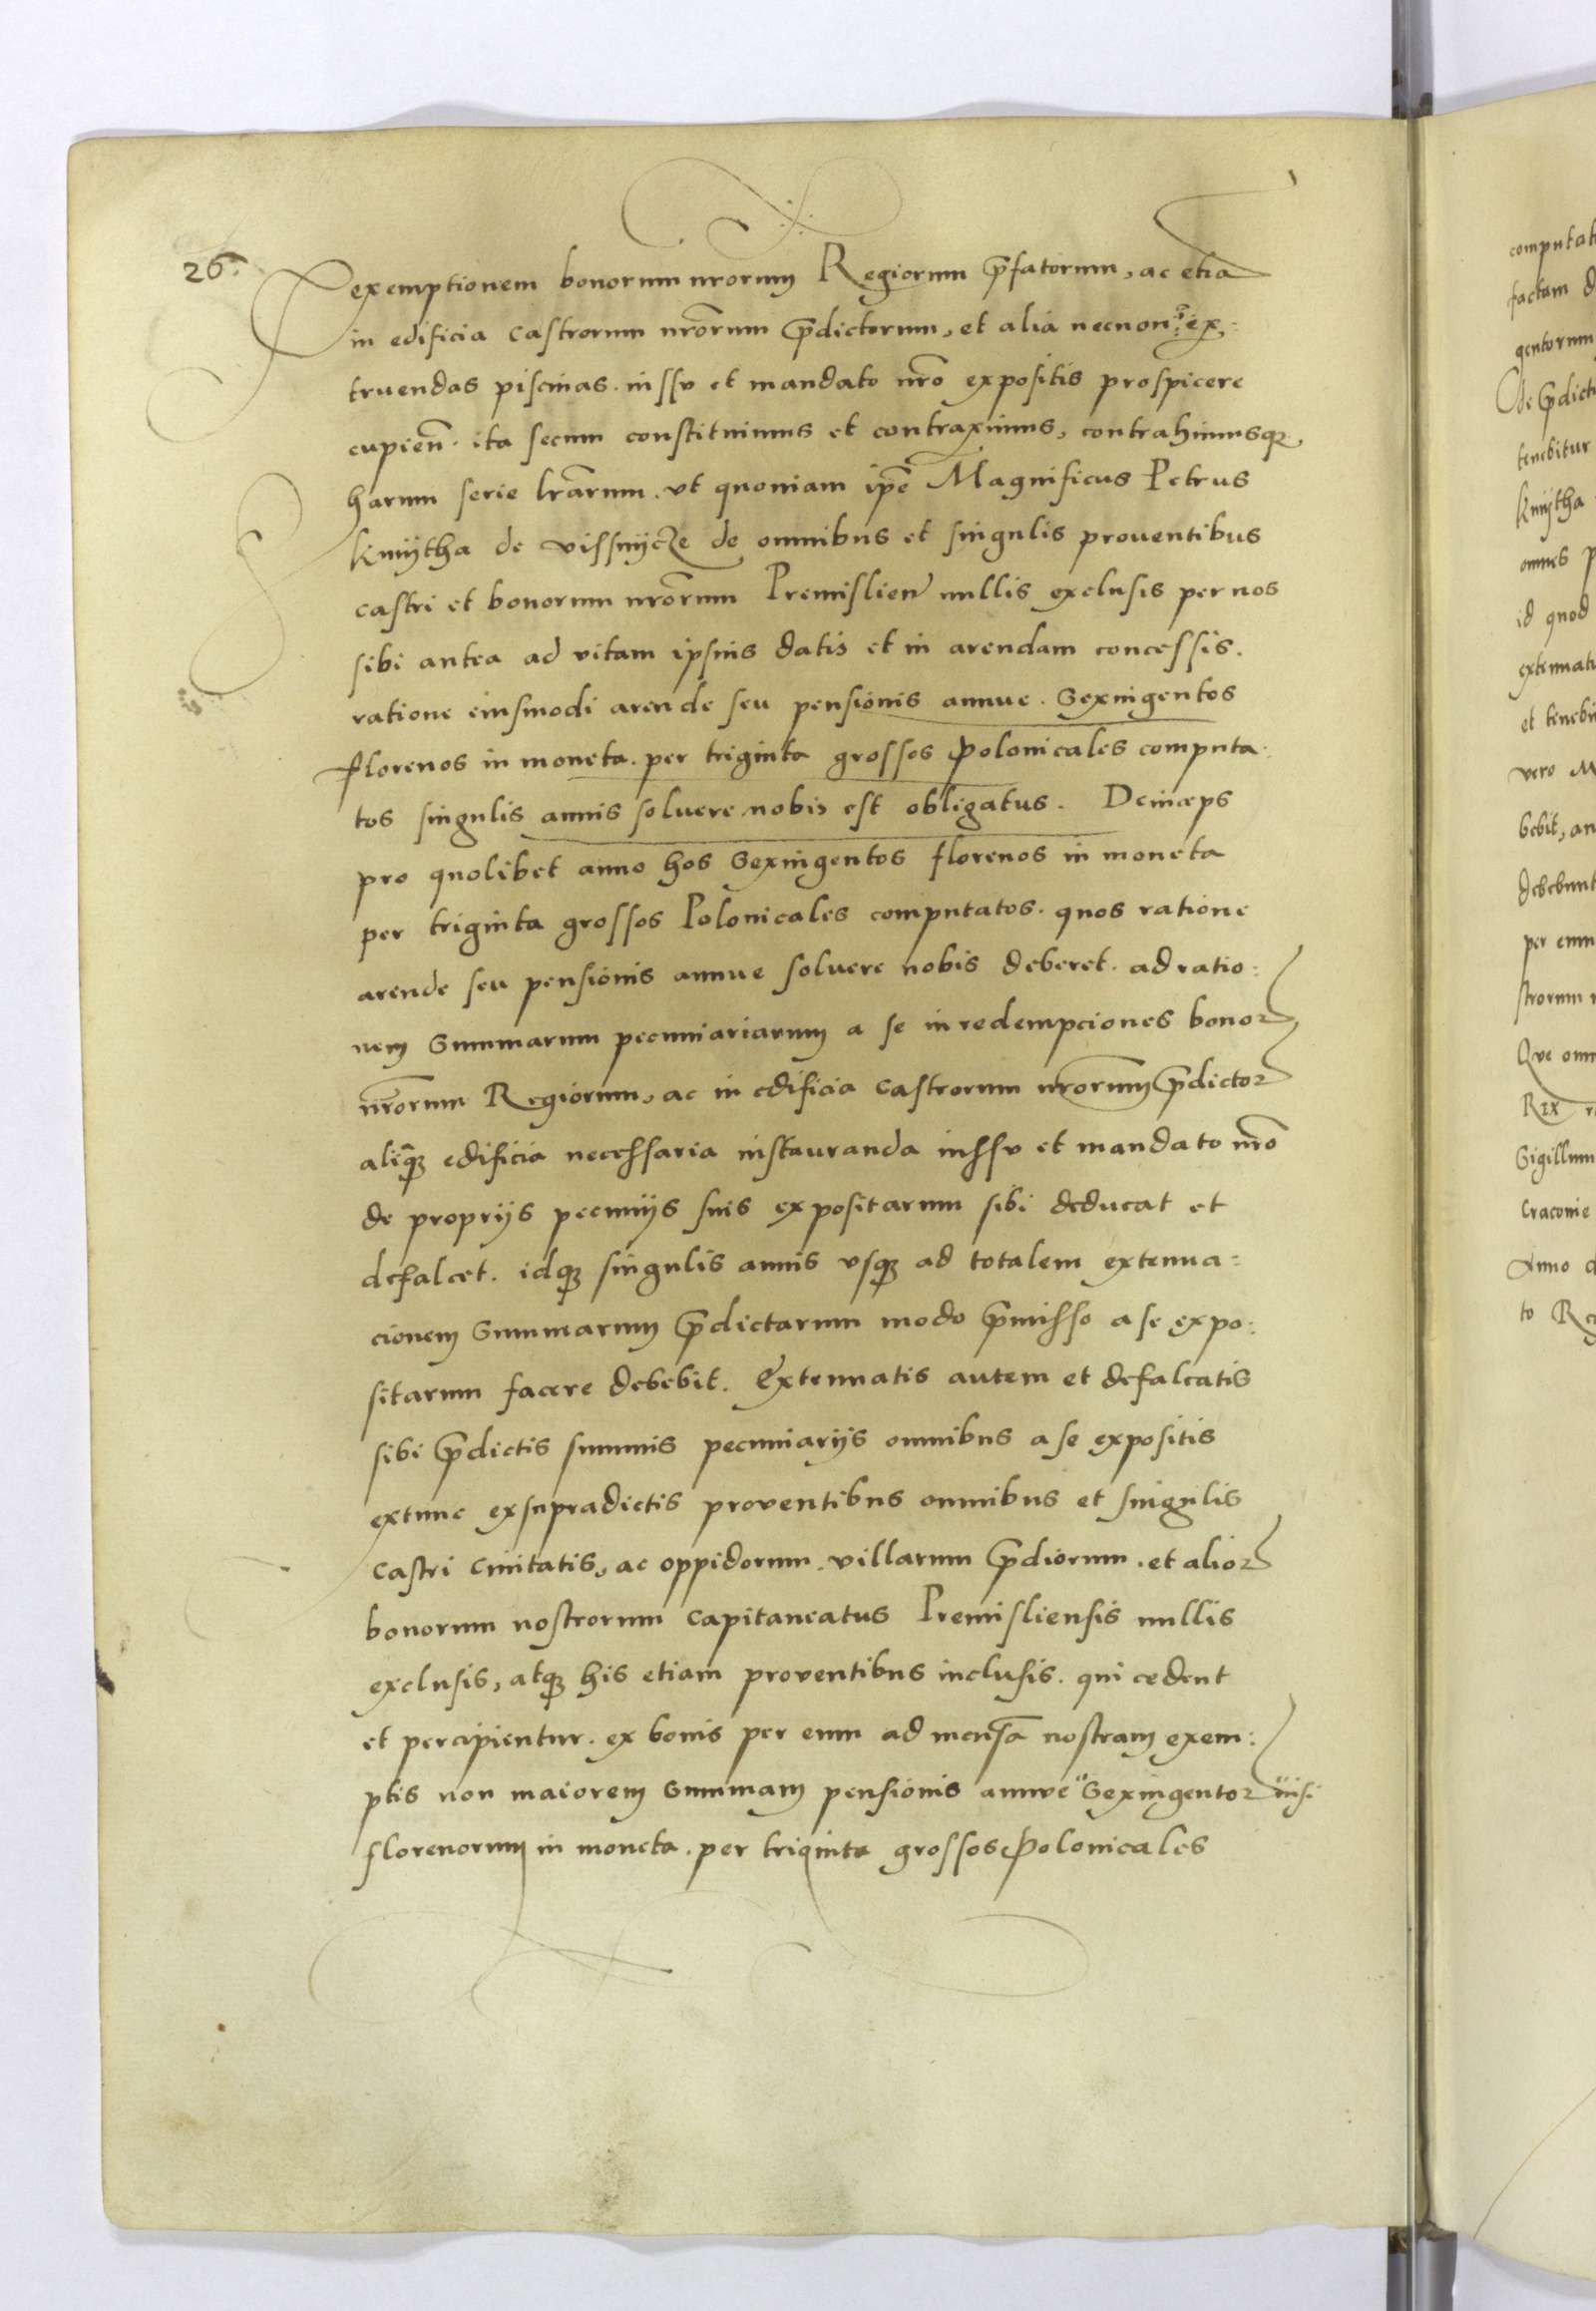 26.
exemptionem bonorum nrorum Regiorum p̄fatorum, ac etiā
in edificia castrorum nrōrum p̄dictorum, et alia necnon ex:
truendas piscinas. iussv et mandato nrō expositis prospicere
cupien̄. ita secum constituimus et contraximus, contrahimusqꝫ
harum serie lrārum. vt quoniam ip̄e Magnificus Petrus
kmijtha de vissnijcze de omnibus et singulis proventibus
castri et bonorum nrōrum Premislien̄ nullis exclusis per nos
sibi antea ad vitam ipsius datis et in arendam concessis.
ratione eiusmodi arende seu pensionis annue. Sexingentos
florenos in moneta. per triginta grossos polonicales computa:
tos singulis annis solvere nobis est obligatus. Deinceps
pro quolibet anno hos Sexingentos florenos in moneta
per triginta grossos Polonicales computatos. quos ratione
arende seu pensionis annue solvere nobis deberet. ad ratio:
nem Summarum pecuniariarum a se in redempciones bonoꝝ
nrōrum Regiorum, ac in edificia castrorum nrōrum p̄dictoꝝ
aliaqꝫ edificia necessaria instauranda iussv et mandato nrō
de proprijs pecunijs suis expositarum sibi deducat et
defalcet. idqꝫ singulis annis vsqꝫ ad totalem extenua:
cionem Summarum p̄dictarum modo p̄misso a se expo:
sitarum facere debebit. Extenuatis autem et defalcatis
sibi p̄dictis summis pecuniarijs omnibus a se expositis
extunc exsupradictis proventibus omnibus et singulis
castri civitatis, ac oppidorum. villarum p̄diorum. et alioꝝ
bonorum nostrorum capitaneatus Premisliensis nullis
exclusis, atqꝫ his etiam proventibus inclusis. qui cedent
et percipientur. ex bonis per eum ad mensā nostram exem:
ptis non maiorem Summam pensionis annve "Sexingentoꝝ "nisi
florenorum in moneta. per triginta grossos Polonicales
computat
factam d
gentorum
De p̄dict
tenebitur
kmijtha
omnes p
id quod
extenuat
et teneb
vero M
bebit, an
debebunt
per eum
strorum
Que om
Rex
Sigillum
Cracovie
Anno
to Re